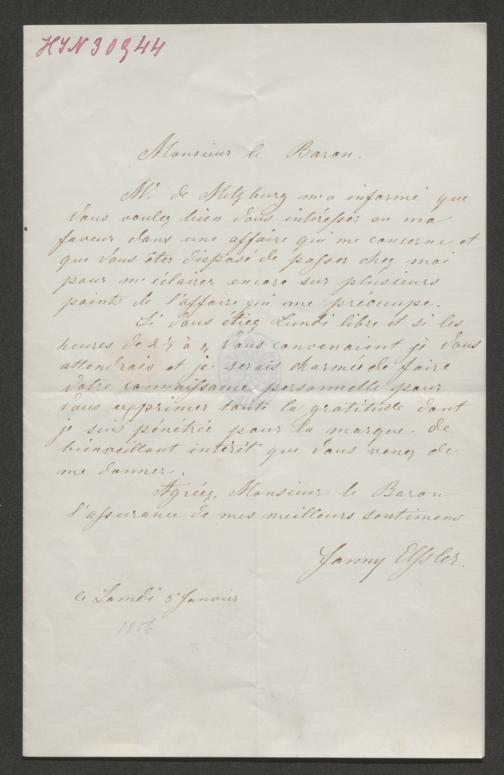 HIN 30944
Monsieur le Baron.
Mr de Metzburg m'a informé que
Vous voulez bien Vous intéresser en ma
faveur dans une affaire qui me concerne et
que Vous êtes disposé de passer chez moi
pour m'éclairer encore sur plusieurs
points de l'affaire qui me préoccupe.
Si Vous étiez Lundi libre et si les
heures de 2½ à 4 Vous convenaient je Vous
attendrais et je serais charmée de faire
Votre connaissance personnelle pour
Vous exprimer toute la gratitude dont
je suis pénétrée pour la marque de
bienveillant intérêt que Vous venez de
me donner.
Agréez, Monsieur le Baron
l'assurance de mes meilleurs sentimens
Fanny Elssler.
ce Samdi 5 Janvier
1856